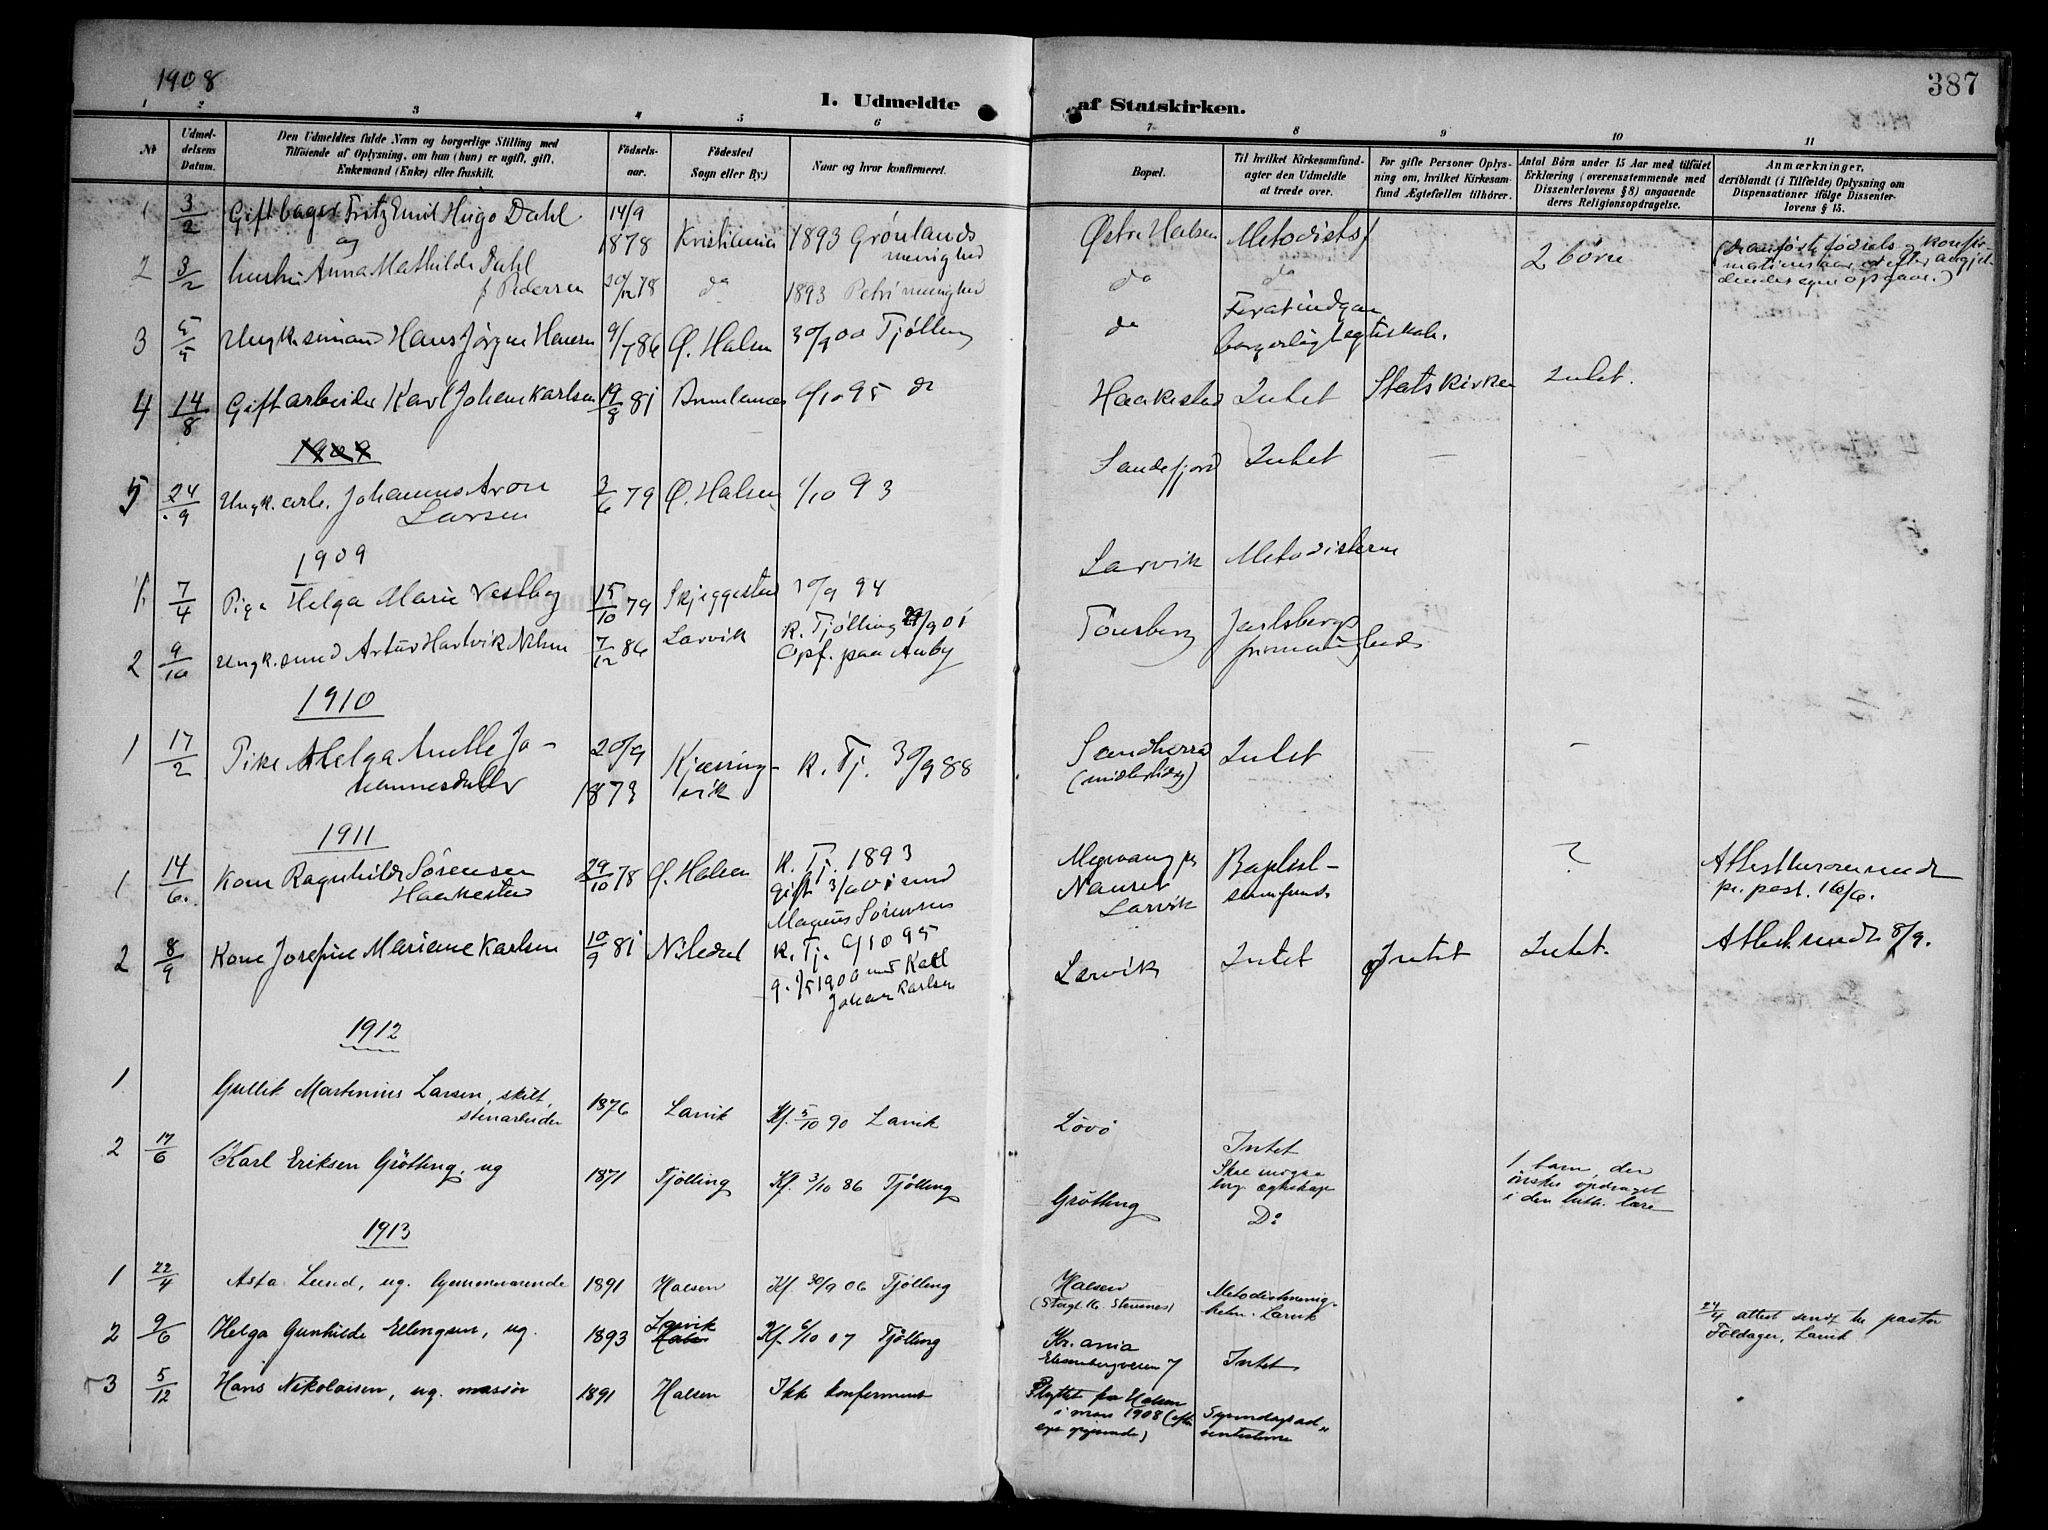 1908
387
I. Udmeldte af Statskirken.
1 2 3 4 5 6 7 8 9 10 11
No
Udmel-
delsens
Datum.
Den Udmeldtes fulde Navn og borgerlige Stilling med
Tilføiende af Oplysning, om han (hun) er ugift, gift,
Enkemand (Enke) eller fraskilt.
Fødsels-
aar.
Fødested
Sogn eller By.)
Naar og hvor konfirmeret.
Bopæl.
Til hvilket Kirkesamfund
agter den Udmeldte
at træde over.
For gifte Personer Oplys-
ning om, hvilket Kirkesam-
fund Ægtefællen tilhører.
Antal Børn under 15 Aar med tilføiet
Erklæring (overensstemmende med
Dissenterlovens § 8) angaaende
deres Religionsopdragelse.
Anmærkninger,
deriblandt (i Tilfælde) Oplysning om
Dispensationer ifølge Dissenter-
lovens § 15.
1 3/2 Gift bager Fritz Emil Hugo Dahl 14/9 1878 Kristiania 1893 Grønlands menighed Østre Halsen Metodistsf 2 børn
og
2 3/2 hustru Anna Mathilde Dahl f Pedersen 20/12 78 do 1893 Petri menighed do do
3 5/5 Ungk. sømand Hans Jørgen Hansen 9/7 86 Ø. Halsen 30/9 00 Tjølling do For at indgaa borgerligt egteskab.
4 14/8 Gift arbeider Karl Johan Karlsen 19/8 81 Brunlanes 6/10 95 do Haakestad Intet Statskirken Intet.
1909
5 24/9 Ungk. arb. Johannes Aron Larsen 3/6 79 Ø. Halsen 1/10 93 Sandefjord Intet -
1909
1 7/4 Pige Helga Marie Vestby 15/10 79 Skjeggestad 30/9 94 Larvik Metodisterne
2 9/10 Ungk. smed Artur Hartvik Nilsen 7/12 86 Larvik K. Tjølling 29/9 01 Opf. paa Auby Tønsberg Jarlsberg frimenighed
1910
1 17/2 Pike Helga Johannesdatter 20/9 1873 Kjærringvik K. Tj. 30/9 88 Sandherred (midlertidig) Intet -
1911
1 14/6. Kone Ragnhilde Sørensen Haakestad 29/10 78 Ø. Halsen K. Tj. 1893 gift med Magnus Sørensen Nanset Larvik Baptist-samfund ? pr. post. 16/6.
2 8/9 Kone Josefine Mariane Karlsen 10/9 81 K. Tj. 6/10 95 g. 1900 med Karl Johan Karlsen Larvik Intet Intet Intet. Attest sendt 8/9.
1912
1 Gullik Martinius Larsen, skilt, stenarbeider 1876 Larvik Kf. 5/10 90 Larvik Løvø Intet Skal inngaa brg. egteskap
2 17/6 Karl Eriksen Grøtting, ug 1871 Tjølling Kf. 3/10 86 Tjølling Grøtting Do 1 barn, der ønskes opdraget i den luth. lære
1913
1 22/4 Asta Lund, ug. hjemmeværende 1891 Halsen Kf. 30/9 06 Tjølling Halsen Metodistmenigheten. Larvik 24/4 attest sendt til pastor Foldager, Larvik
2 9/6 Helga Gunhilde Ellingsen, ug. 1893 Larvik Kf. 6/10 07 Tjølling Kr.ania Eilenbergveien 7 Intet
3 5/12 Hans Nikolaisen, ug. 1891 Halsen Ikke konfirmert Flyttet fra Halsen i mars 1908 (efter Syvendagsadventisterne